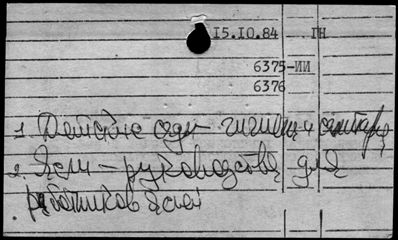 15.10.84 ГН
6375-ИИ
6376
1. Детские сады - гигиена и санитария
2. Ясли - руководства для
работников яслей